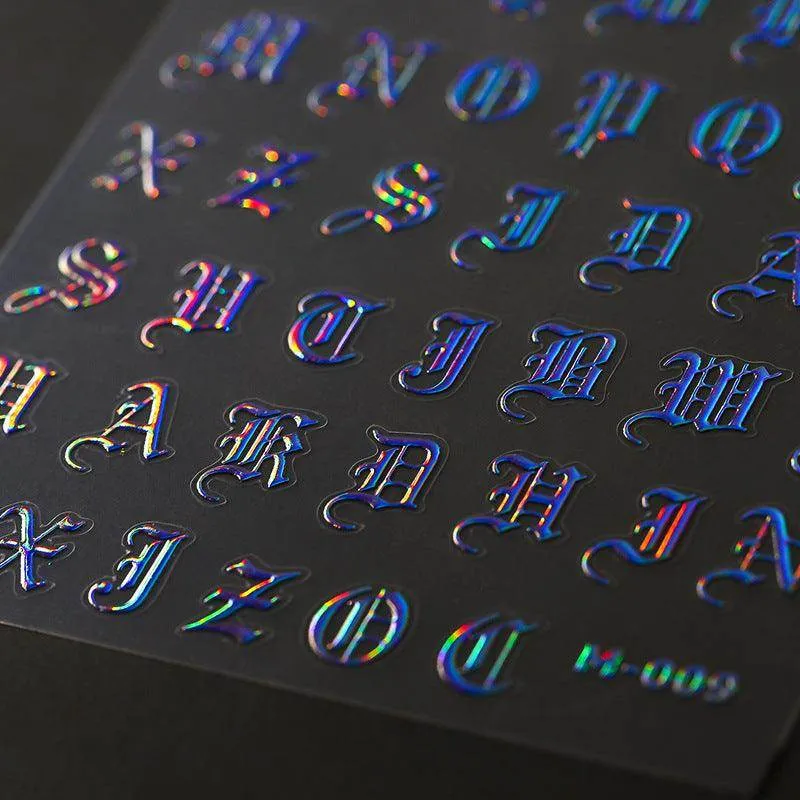 M N O P Q
X Z S I D A
S U T J B W
U A K D H I A
X J Z O C
M-009